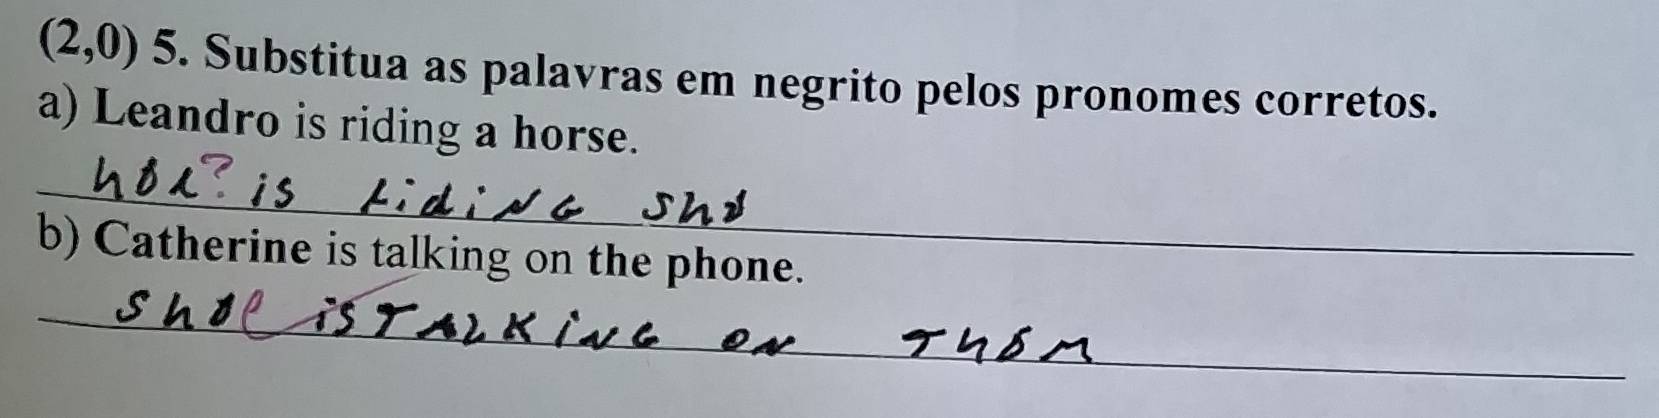 (2,0) 5. Substitua as palavras em negrito pelos pronomes corretos.
a) Leandro is riding a horse.
her? is riding she
b) Catherine is talking on the phone.
she is TALKING ON THEM